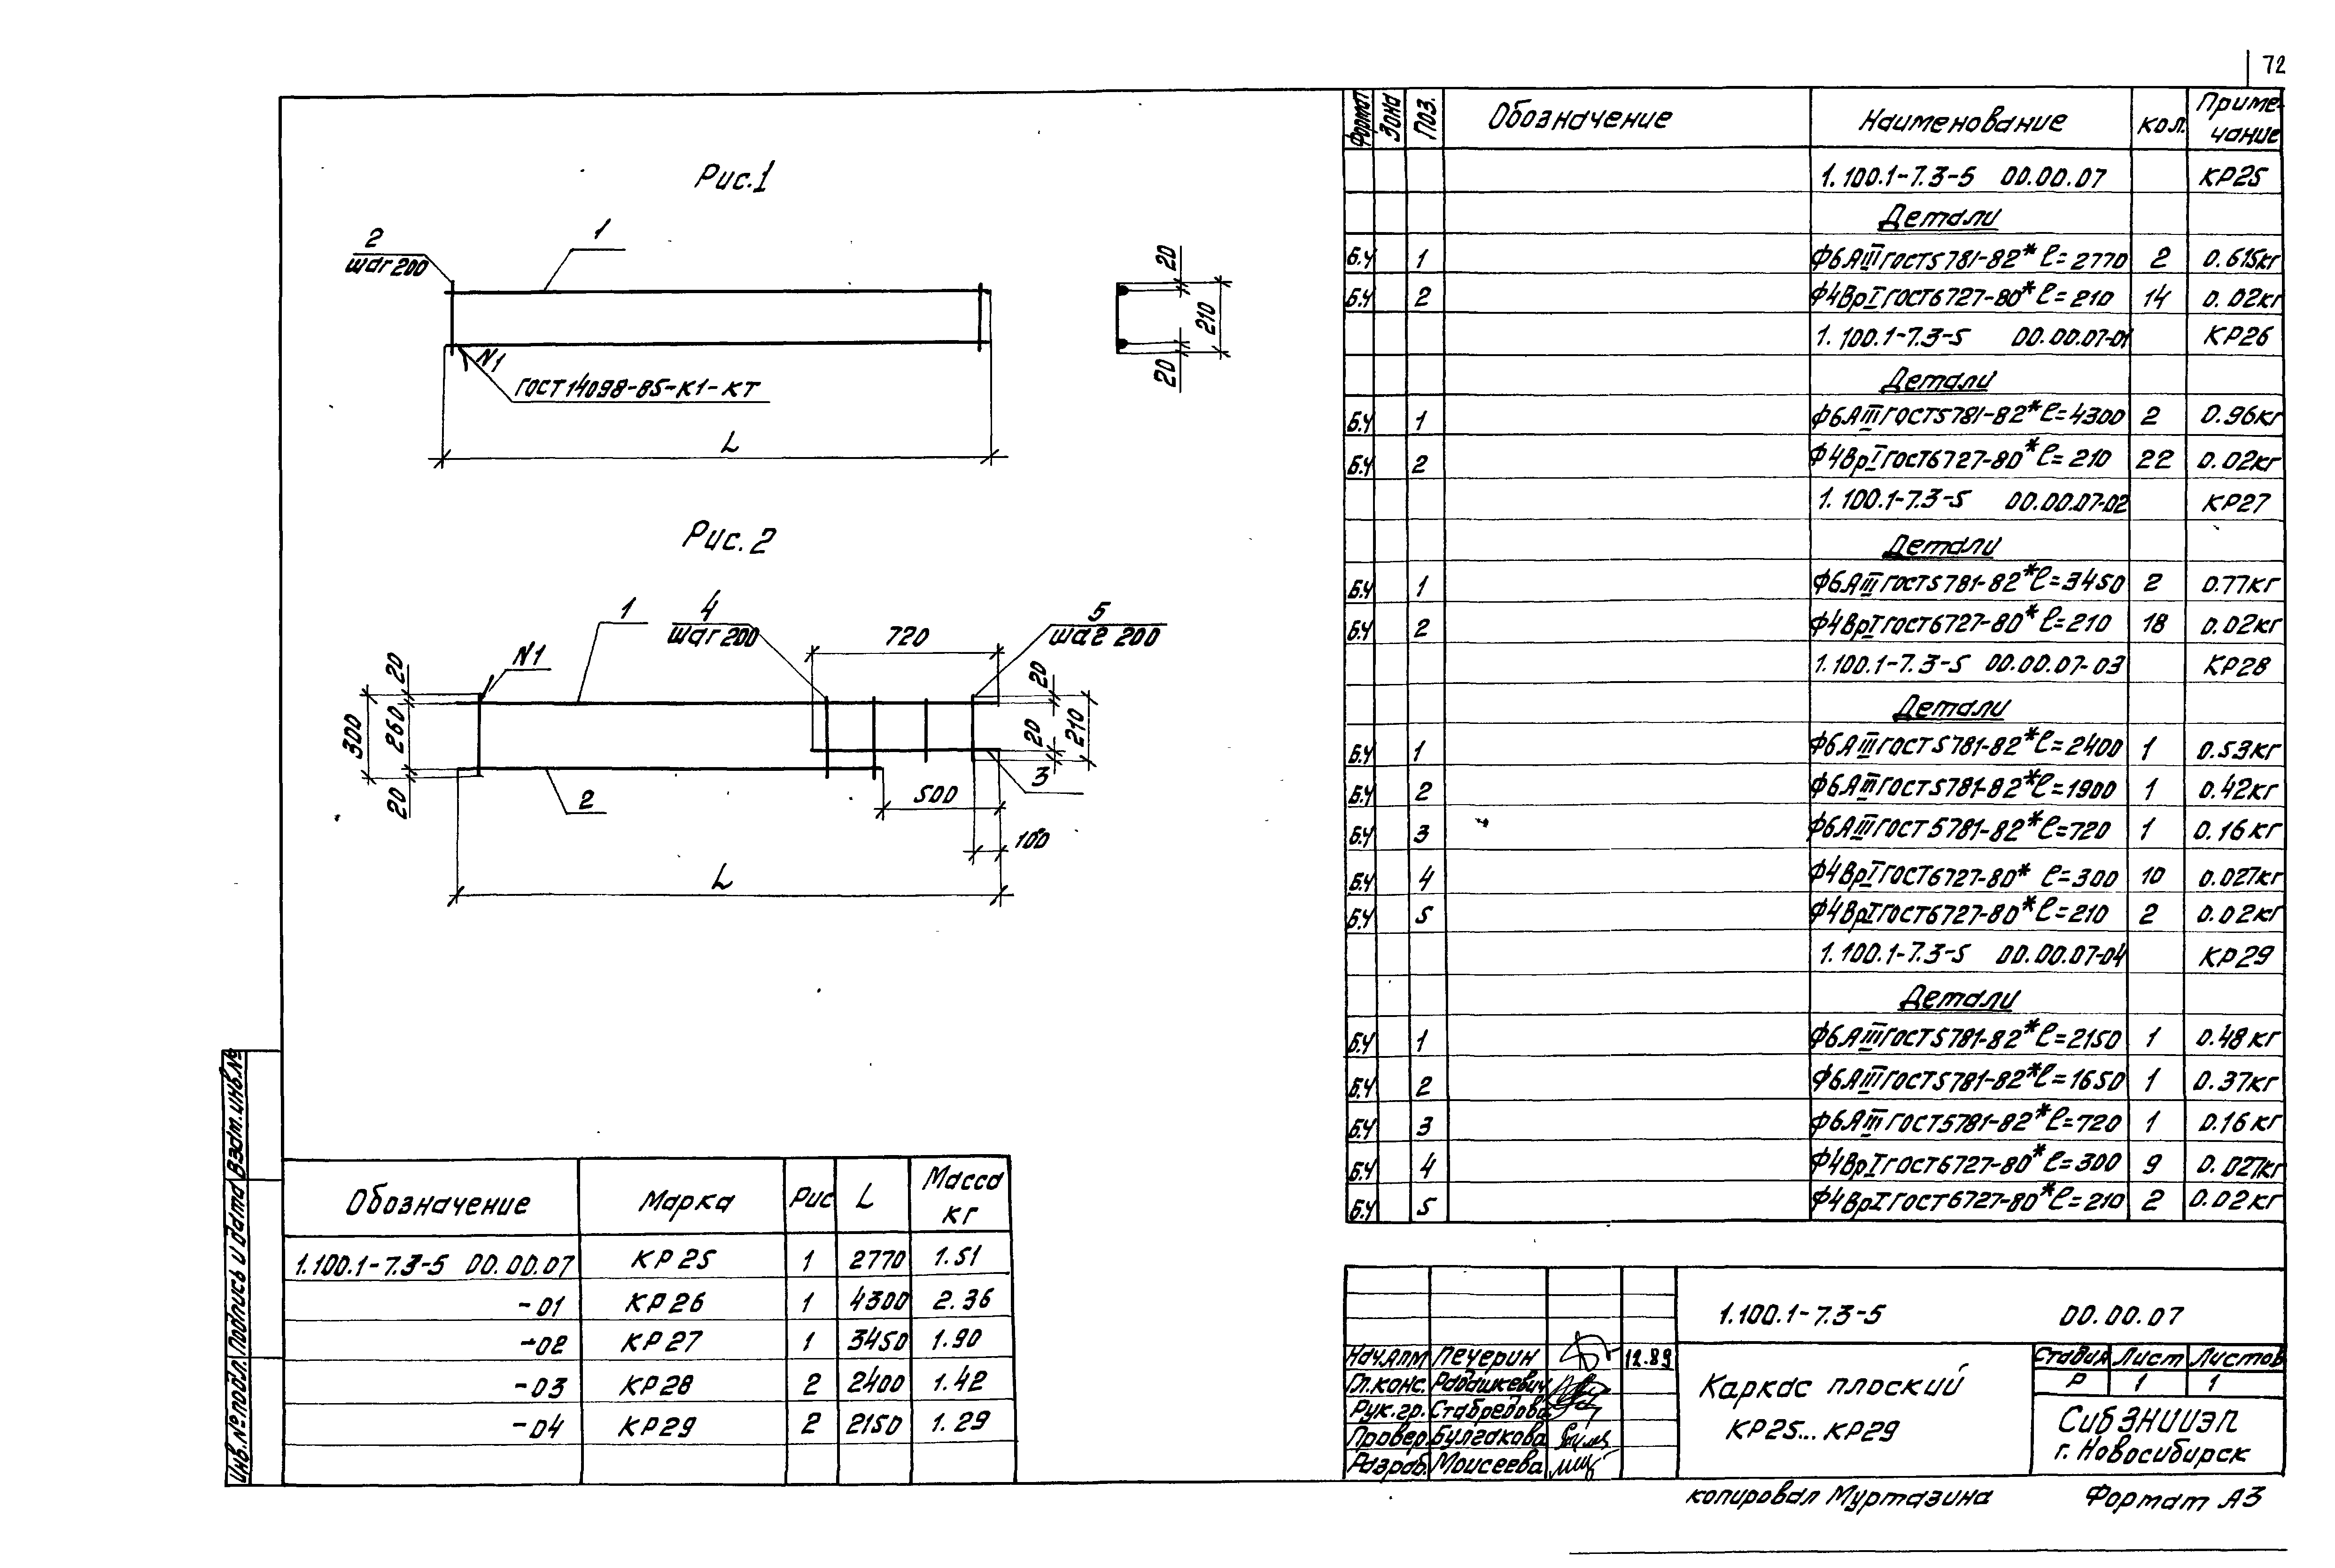 72
Рис.1
2
шаг 200
1
N1
ГОСТ 14098-85-К1-КТ
L
20
210
20
Рис. 2
1
4
шаг 200
720
5
шаг 200
N1
20
260
300
20
20
20
210
3
2
500
100
L
Обозначение Марка Рис L Масса кг
1.100.1-7.3-5 00.00.07 КР25 1 2770 1.51
-01 КР26 1 4300 2.36
-02 КР27 1 3450 1.90
-03 КР28 2 2400 1.42
-04 КР29 2 2150 1.29
Формат Зона Поз. Обозначение Наименование Кол. Примечание
1.100.1-7.3-5 00.00.07 КР25
Детали
Б.Ч 1 Ф6АIII ГОСТ5781-82* ℓ=2770 2 0.615кг
Б.Ч 2 Ф4ВрI ГОСТ6727-80* ℓ=210 14 0.02кг
1.100.1-7.3-5 00.00.07-01 КР26
Детали
Б.Ч 1 Ф6АIII ГОСТ5781-82* ℓ=4300 2 0.96кг
Б.Ч 2 Ф4ВрI ГОСТ6727-80* ℓ=210 22 0.02кг
1.100.1-7.3-5 00.00.07-02 КР27
Детали
Б.Ч 1 Ф6АIII ГОСТ5781-82* ℓ=3450 2 0.77кг
Б.Ч 2 Ф4ВрI ГОСТ6727-80* ℓ=210 18 0.02кг
1.100.1-7.3-5 00.00.07-03 КР28
Детали
Б.Ч 1 Ф6АIII ГОСТ5781-82* ℓ=2400 1 0.53кг
Б.Ч 2 Ф6АIII ГОСТ5781-82* ℓ=1900 1 0.42кг
Б.Ч 3 Ф6АIII ГОСТ5781-82* ℓ=720 1 0.16кг
Б.Ч 4 Ф4ВрI ГОСТ6727-80* ℓ=300 10 0.027кг
Б.Ч 5 Ф4ВрI ГОСТ6727-80* ℓ=210 2 0.02кг
1.100.1-7.3-5 00.00.07-04 КР29
Детали
Б.Ч 1 Ф6АIII ГОСТ5781-82* ℓ=2150 1 0.48кг
Б.Ч 2 Ф6АIII ГОСТ5781-82* ℓ=1650 1 0.37кг
Б.Ч 3 Ф6АIII ГОСТ5781-82* ℓ=720 1 0.16кг
Б.Ч 4 Ф4ВрI ГОСТ6727-80* ℓ=300 9 0.027кг
Б.Ч 5 Ф4ВрI ГОСТ6727-80* ℓ=210 2 0.02кг
1.100.1-7.3-5 00.00.07
Нач.АПМ Печерин 12.89
Гл.конс. Рабашкевич
Рук.гр. Ставредова
Провер. Булгакова
Разраб. Моисеева
Каркас плоский
КР25...КР29
Стадия Лист Листов
Р 1 1
СибЗНИИЭП
г. Новосибирск
копировал Муртазина Формат А3
Инв.№ подл. Подпись и дата Взам.инв.№